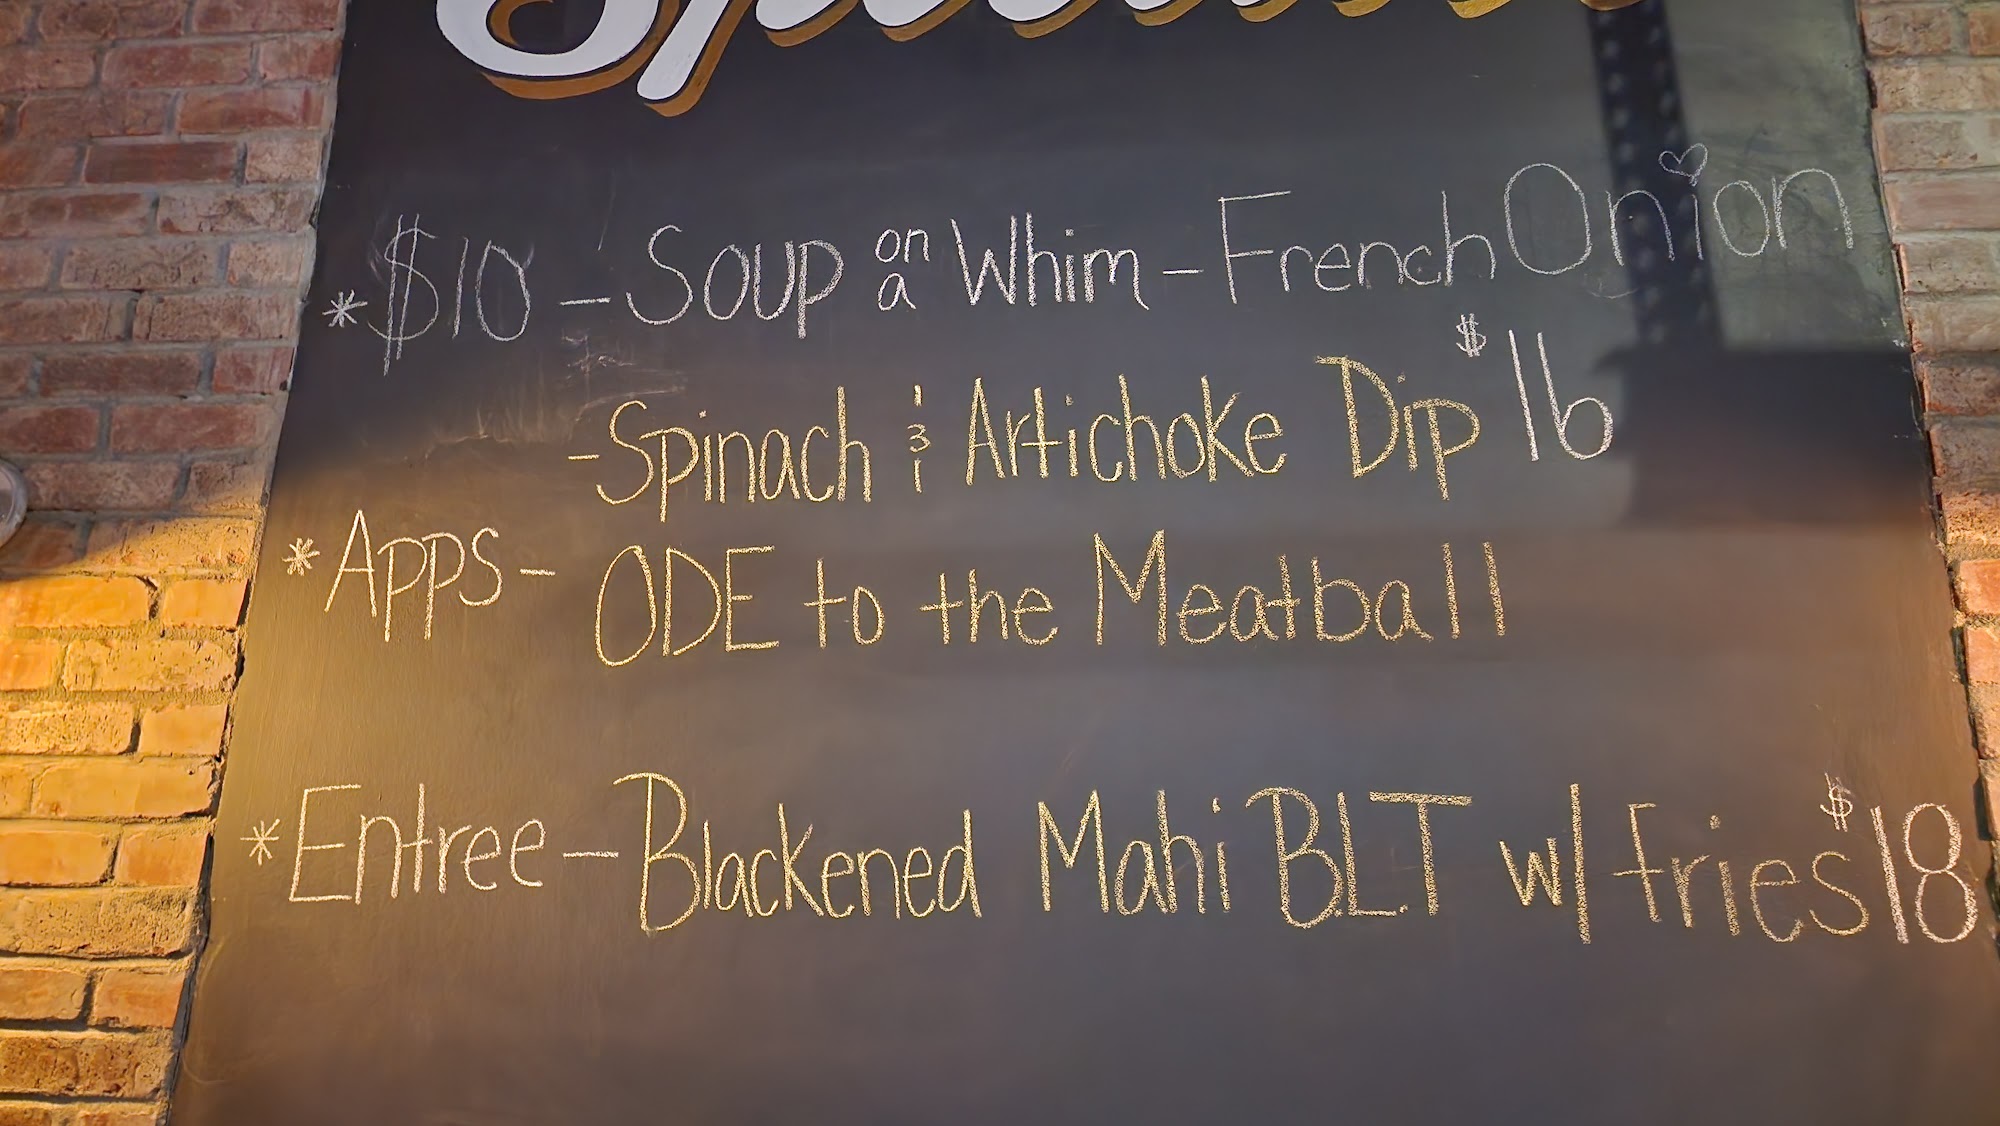 * $10 - Soup on a Whim - French Onion
- Spinach & Artichoke Dip $16
* Apps - ODE to the Meatball
* Entree - Blackened Mahi B.L.T w/ fries $18